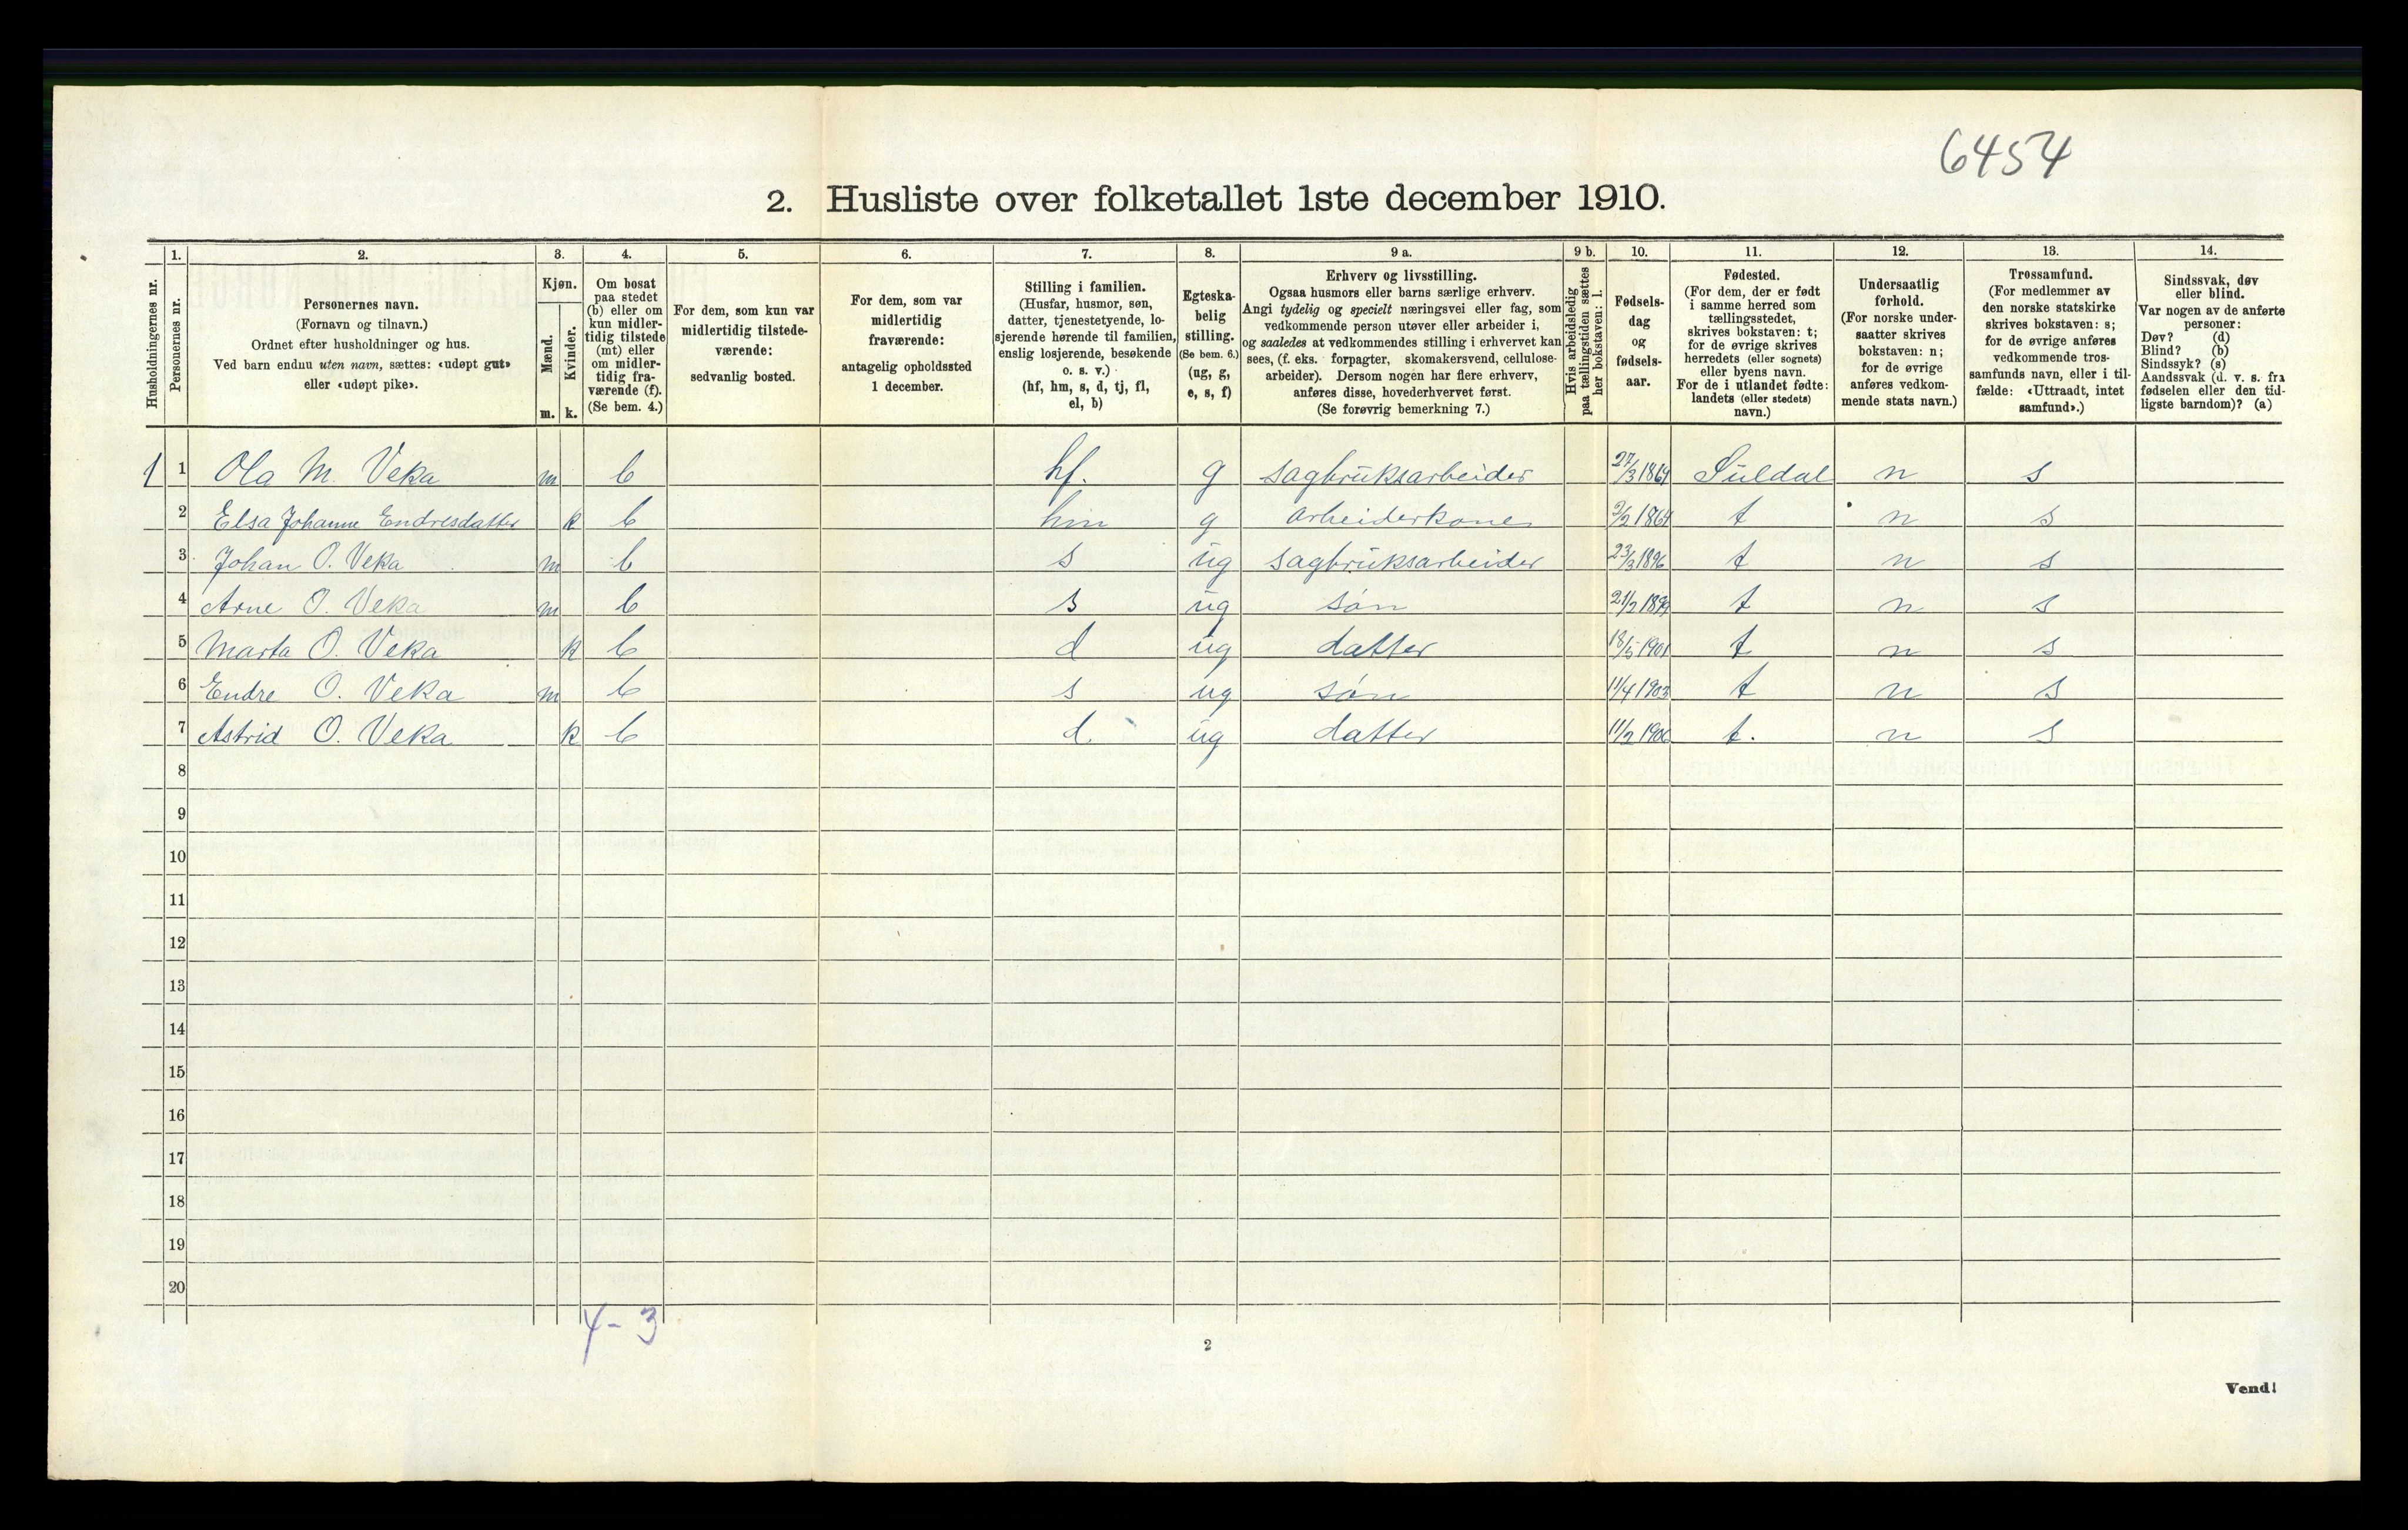 6454
2. Husliste over folketallet 1ste december 1910.
Husholdningernes nr.
1. Personernes nr.
2. Personernes navn.
(Fornavn og tilnavn.)
Ordnet efter husholdninger og hus.
Ved barn endnu uten navn, sættes: «udøpt gut»
eller «udøpt pike».
3. Kjøn.
Mænd. m.
Kvinder. k.
4. Om bosat
paa stedet
(b) eller om
kun midler-
tidig tilstede
(mt) eller
om midler-
tidig fra-
værende (f).
(Se bem. 4.)
5. For dem, som kun var
midlertidig tilstede-
værende:
sedvanlig bosted.
6. For dem, som var
midlertidig
fraværende:
antagelig opholdssted
1 december.
7. Stilling i familien.
(Husfar, husmor, søn,
datter, tjenestetyende, lo-
sjerende hørende til familien,
enslig losjerende, besøkende
o. s. v.)
(hf, hm, s, d, tj, fl,
el, b)
8. Egteska-
belig
stilling.
(Se bem. 6.)
(ug, g,
e, s, f)
9 a. Erhverv og livsstilling.
Ogsaa husmors eller barns særlige erhverv.
Angi tydelig og specielt næringsvei eller fag, som
vedkommende person utøver eller arbeider i,
og saaledes at vedkommendes stilling i erhvervet kan
sees, (f. eks. forpagter, skomakersvend, cellulose-
arbeider). Dersom nogen har flere erhverv,
anføres disse, hovederhvervet først.
(Se forøvrig bemerkning 7.)
9 b. Hvis arbeidsledig
paa tællingstiden sættes
her bokstaven: l.
10. Fødsels-
dag
og
fødsels-
aar.
11. Fødested.
(For dem, der er født
i samme herred som
tællingsstedet,
skrives bokstaven: t;
for de øvrige skrives
herredets (eller sognets)
eller byens navn.
For de i utlandet fødte:
landets (eller stedets)
navn.)
12. Undersaatlig
forhold.
(For norske under-
saatter skrives
bokstaven: n;
for de øvrige
anføres vedkom-
mende stats navn.)
13. Trossamfund.
(For medlemmer av
den norske statskirke
skrives bokstaven: s;
for de øvrige anføres
vedkommende tros-
samfunds navn, eller i til-
fælde: «Uttraadt, intet
samfund».)
14. Sindssvak, døv
eller blind.
Var nogen av de anførte
personer:
Døv? (d)
Blind? (b)
Sindssyk? (s)
Aandssvak (d. v. s. fra
fødselen eller den tid-
ligste barndom)? (a)
1 1 Ola M. Veka m b hf. g sagbruksarbeider 27/3 1864 Suldal n s
2 Elsa Johanne Endresdatter k b hm g arbeiderkone 2/2 1864 t n s
3 Johan O. Veka m b s ug sagbruksarbeider 23/3 1896 t n s
4 Arne O. Veka m b s ug søn 21/2 1899 t n s
5 Marta O. Veka k b d ug datter 18/5 1901 t n s
6 Endre O. Veka m b s ug søn 11/4 1903 t n s
7 Astrid O. Veka k b d. ug datter 11/2 1906 t. n s
8
9
10
11
12
13
14
15
16
17
18
19
20
4-3
2
Vend!